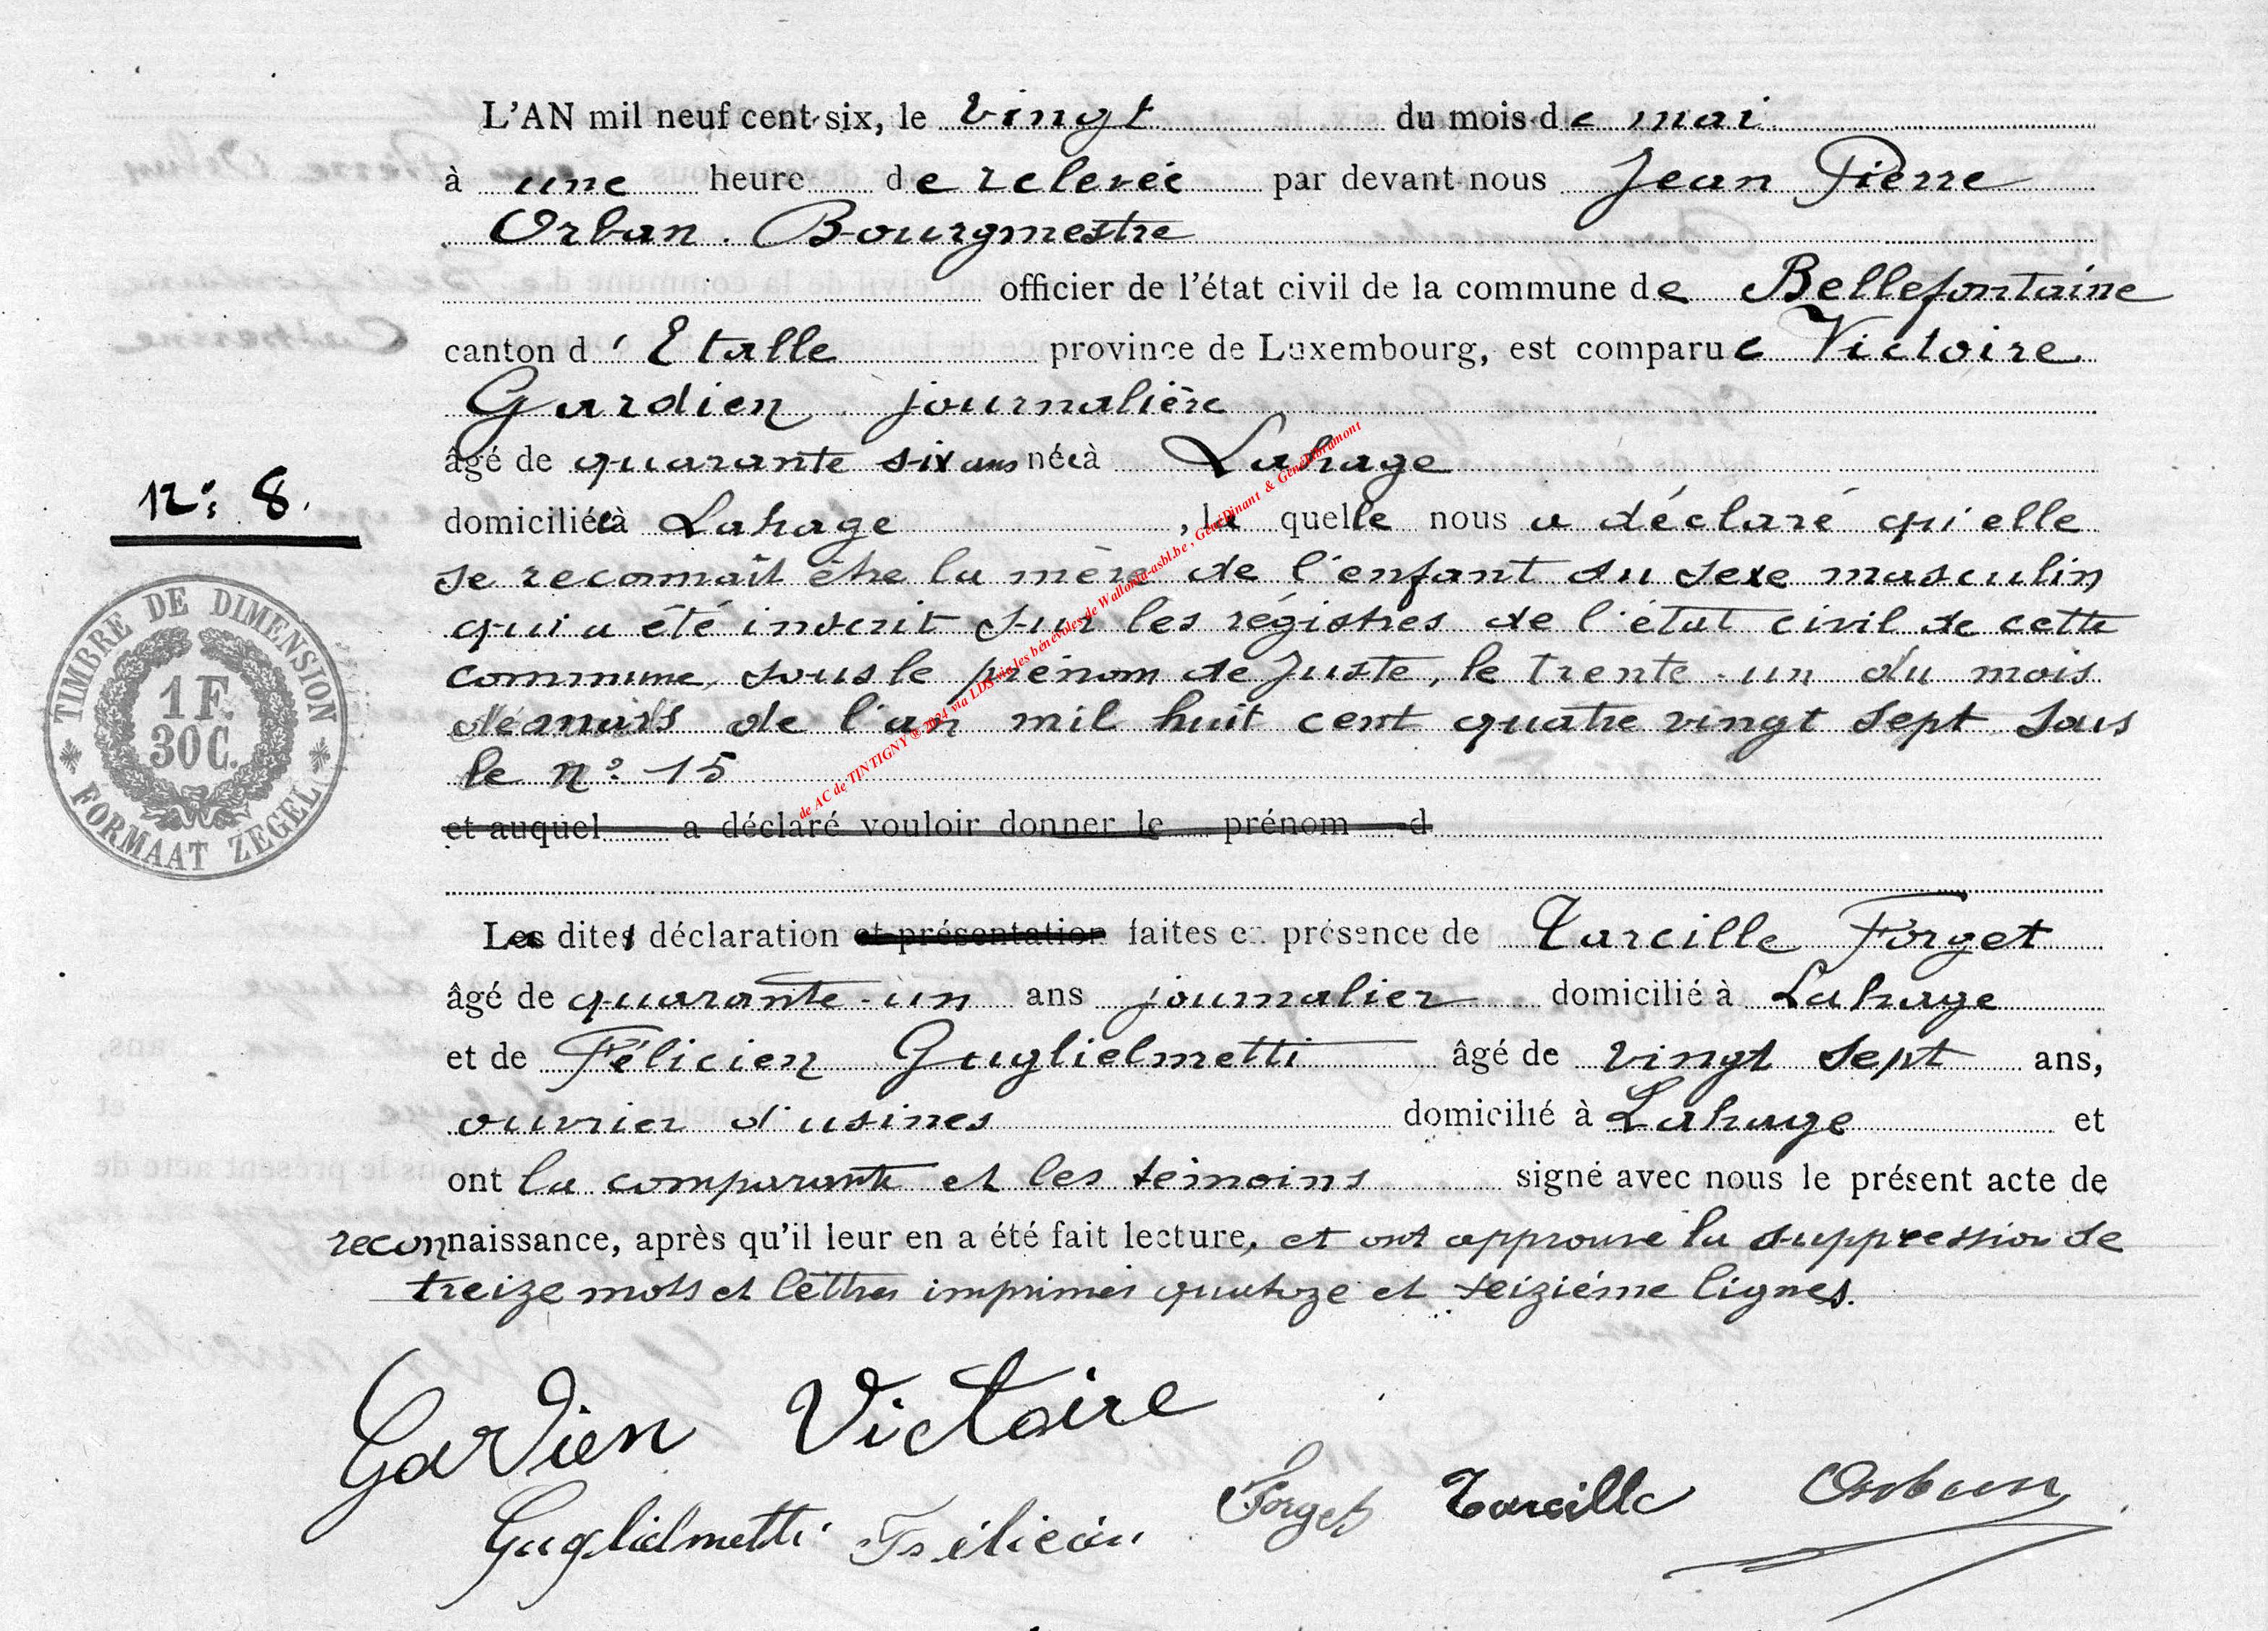 L'AN mil neuf cent six, le vingt du mois de mai
à une heure de relevée par devant nous Jean Pierre
Orban. Bourgmestre
officier de l'état civil de la commune de Bellefontaine
canton d'Etalle province de Luxembourg, est comparue Victoire
Gardien journalière
âgé de quarante six ans née à Lahage
N° 8.
domiciliée à Lahage, la quelle nous a déclaré qu'elle
se reconnaît être la mère de l'enfant du sexe masculin
qui a été inscrit sur les régistres de l'état civil de cette
commune, sous le prénom de Juste, le trente-un du mois
de mars de l'an mil huit cent quatre vingt sept sous
le n° 15
et auquel a déclaré vouloir donner le prénom d
TIMBRE DE DIMENSION
1 F.
30 C.
FORMAAT ZEGEL
de AC de TINTIGNY © 2024 via LDS via les bénévoles de Wallonia-asbl.be, GénéDinant & Génélibramont
Les dites déclaration et présentation faites en présence de Tarcille Forget
âgé de quarante-un ans journalier domicilié à Lahage
et de Félicien Guglielmetti âgé de vingt sept ans,
ouvrier d'usines domicilié à Lahage et
ont la comparante et les témoins signé avec nous le présent acte de
reconnaissance, après qu'il leur en a été fait lecture, et ont approuvé la suppression de
treize mots et lettres imprimés quatorze et seizième lignes.
Gardien Victoire
Guglielmetti Félicien Forget Tarcille Orban